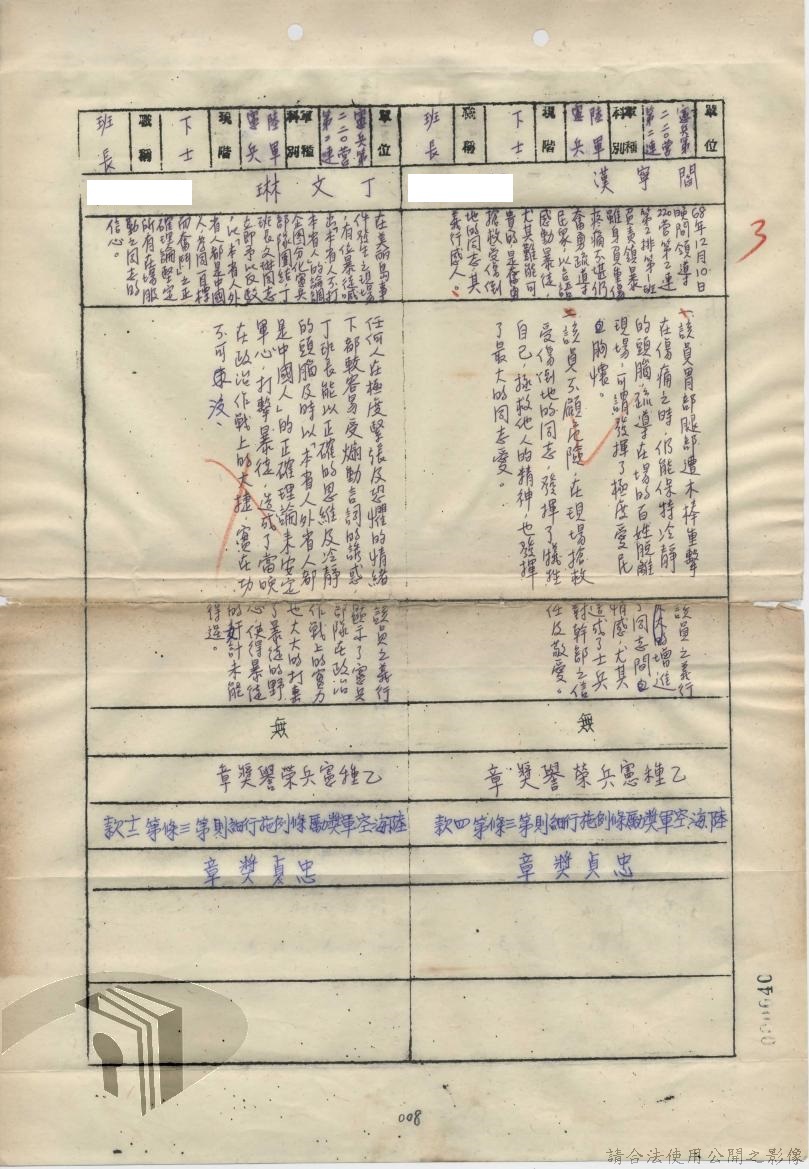 3
單位
憲兵第
二二〇營
第二連
軍種
科別
陸軍
憲兵
現階
下士
職稱
班長
閻寧漢
68年12月10日
晚間領導
220營第2連
第2排第1班
員責鎮暴
雖身員重傷
疼痛不堪仍
奮勇疏導
民眾,以言語
感動暴徒,
尤其難能可
貴的是奮勇
搶救受傷倒
地的同志,其
義行感人。
一、該員胃部腿部遭木棒重擊
在傷痛之時,仍能保特冷靜
的頭腦,疏導在場的百姓脫離
現場,可謂發揮了極度愛民
的胸懷。
二、該員不顧危險,在現場搶救
受傷倒地的同志,發揮了犧牲
自己,拯救他人的精神,也發揮
了最大的同志愛。
該員之義行
增進
了同志間的
情感,尤其
造成了士兵
對幹部之信
任及敬愛。
無
乙種憲兵榮譽獎章
陸海空軍獎勵條例施行細則第三條第四款
忠貞獎章
單位
憲兵第
二二〇營
第二連
軍種
科別
陸軍
憲兵
現階
下士
職稱
班長
丁文琳
在美麗島事
件發生之現場
,有位暴徒喊
出「本省人不打
本省人」的論調
企圖分化憲兵
部隊團結,丁
班長文琳同志
立即予以反駁
,以「本省人外
省人都是中國
人,為同一目標
而奮鬥」之正
確理論堅定
所有在場服
勤之同志的
信心。
任何人在極度緊張及恐懼的情緒
下都較容易受煽動言詞的誘惑,
丁班長能以正確的思維及冷靜
的頭腦及時以「本省人外省人都
是中國人」的正確理論來安定
軍心,打擊暴徒,造成了當晚
在政治作戰上的大捷,實在功
不可沒、
該員之義行
顯示了憲兵
部隊在政治
作戰上的實力
也大大的打擊
了暴徒的野
心使得暴徒
的奸計未能
得逞。
無
乙種憲兵榮譽獎章
陸海空軍獎勵條例施行細則第三條第十二款
忠貞獎章
008
請合法使用公開之影像